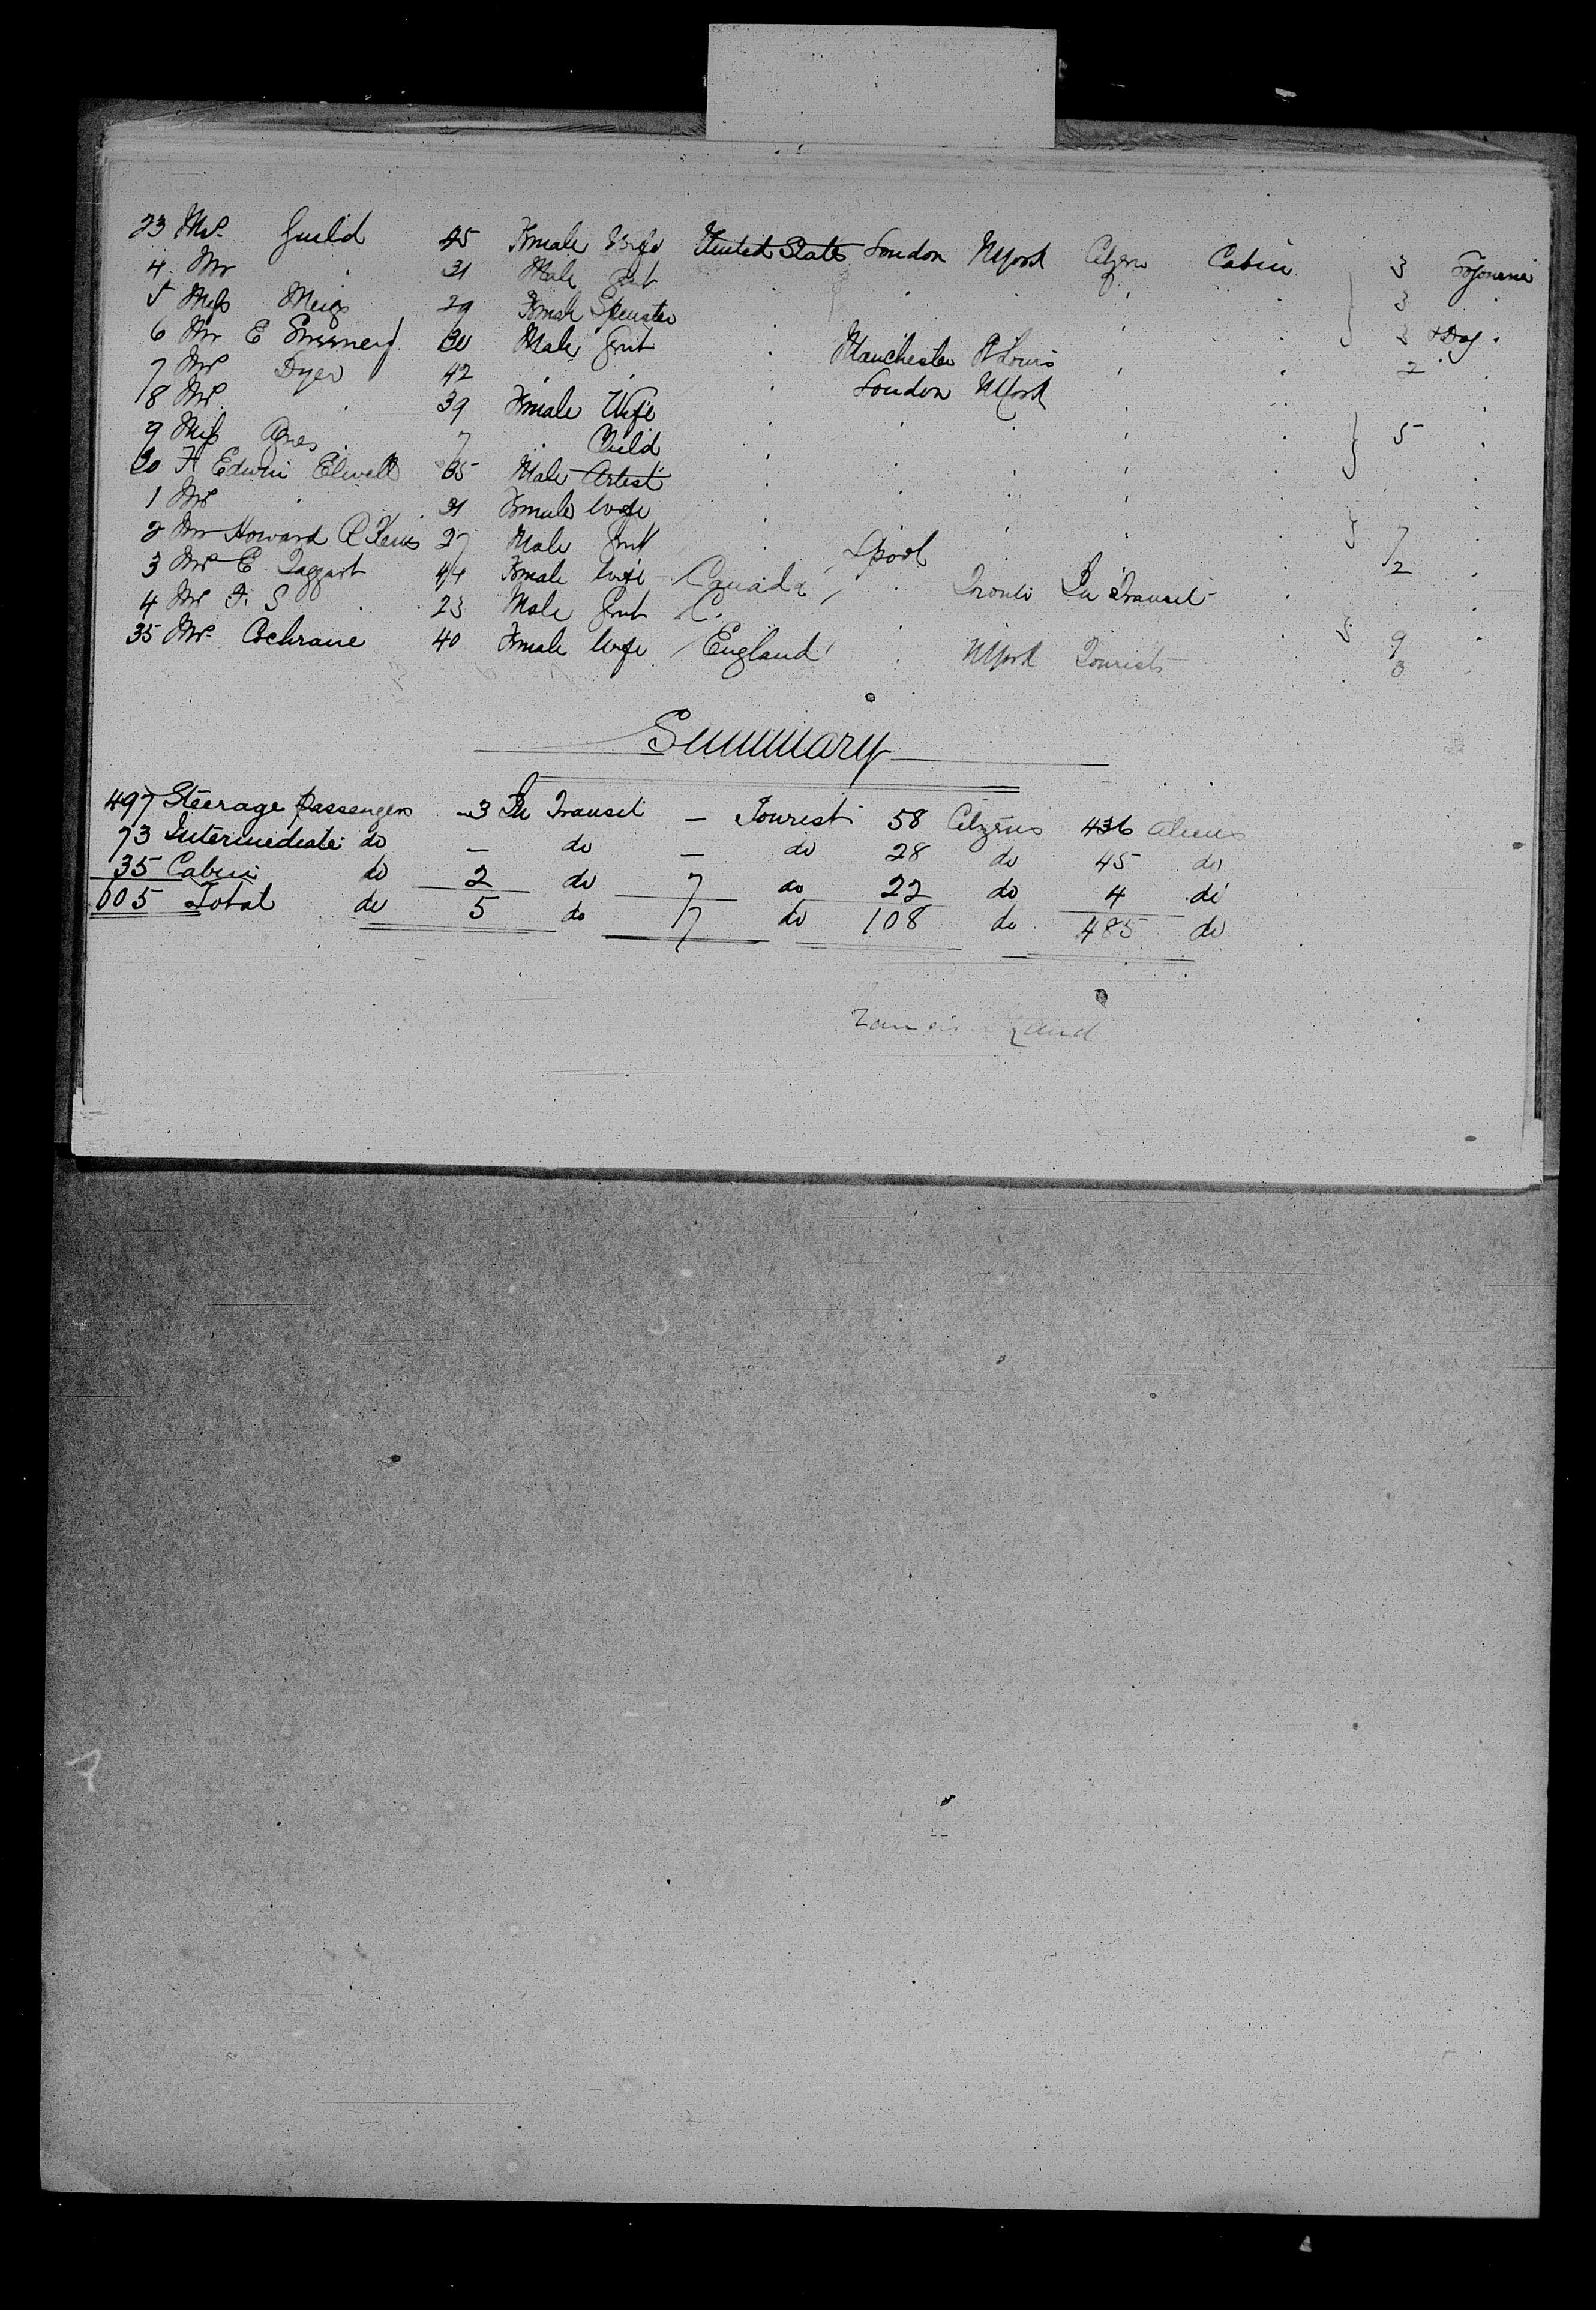 23 Mrs. Guild 45 Female Wife United States London NYork Citzen Cabin } 3 Sojourner
4 Mr . 31 Male Gent 3
5 Miss Meigs 29 Female Spinster 3 + Dog .
6 Mr E 30 Male Gent Manchester St Louis 2
7 Mr Dyer 42 London NYork
8 Mrs . 39 Female Wife } 5
9 Miss Agnes . 7 . Child
30 F Edwin Elwell 35 Male Artist
1 Mrs . 31 Female wife 7
2 Mr Howard 27 Male Gent Lpool 2
3 Mrs E Taggart 44 Female wife Canada Toronto In Transit
4 Mr F. S 23 Male Gent C. 9
35 Mrs Cochrane 40 Female wife England NYork Tourist 3
Summary
497 Steerage passengers 3 In Transit — Tourist 58 Citzens 436 aliens
73 Intermediate do — do — do 28 do 45 do
35 Cabin do 2 do 7 do 22 do 4 do
605 Total do 5 do 7 do 108 do 485 do